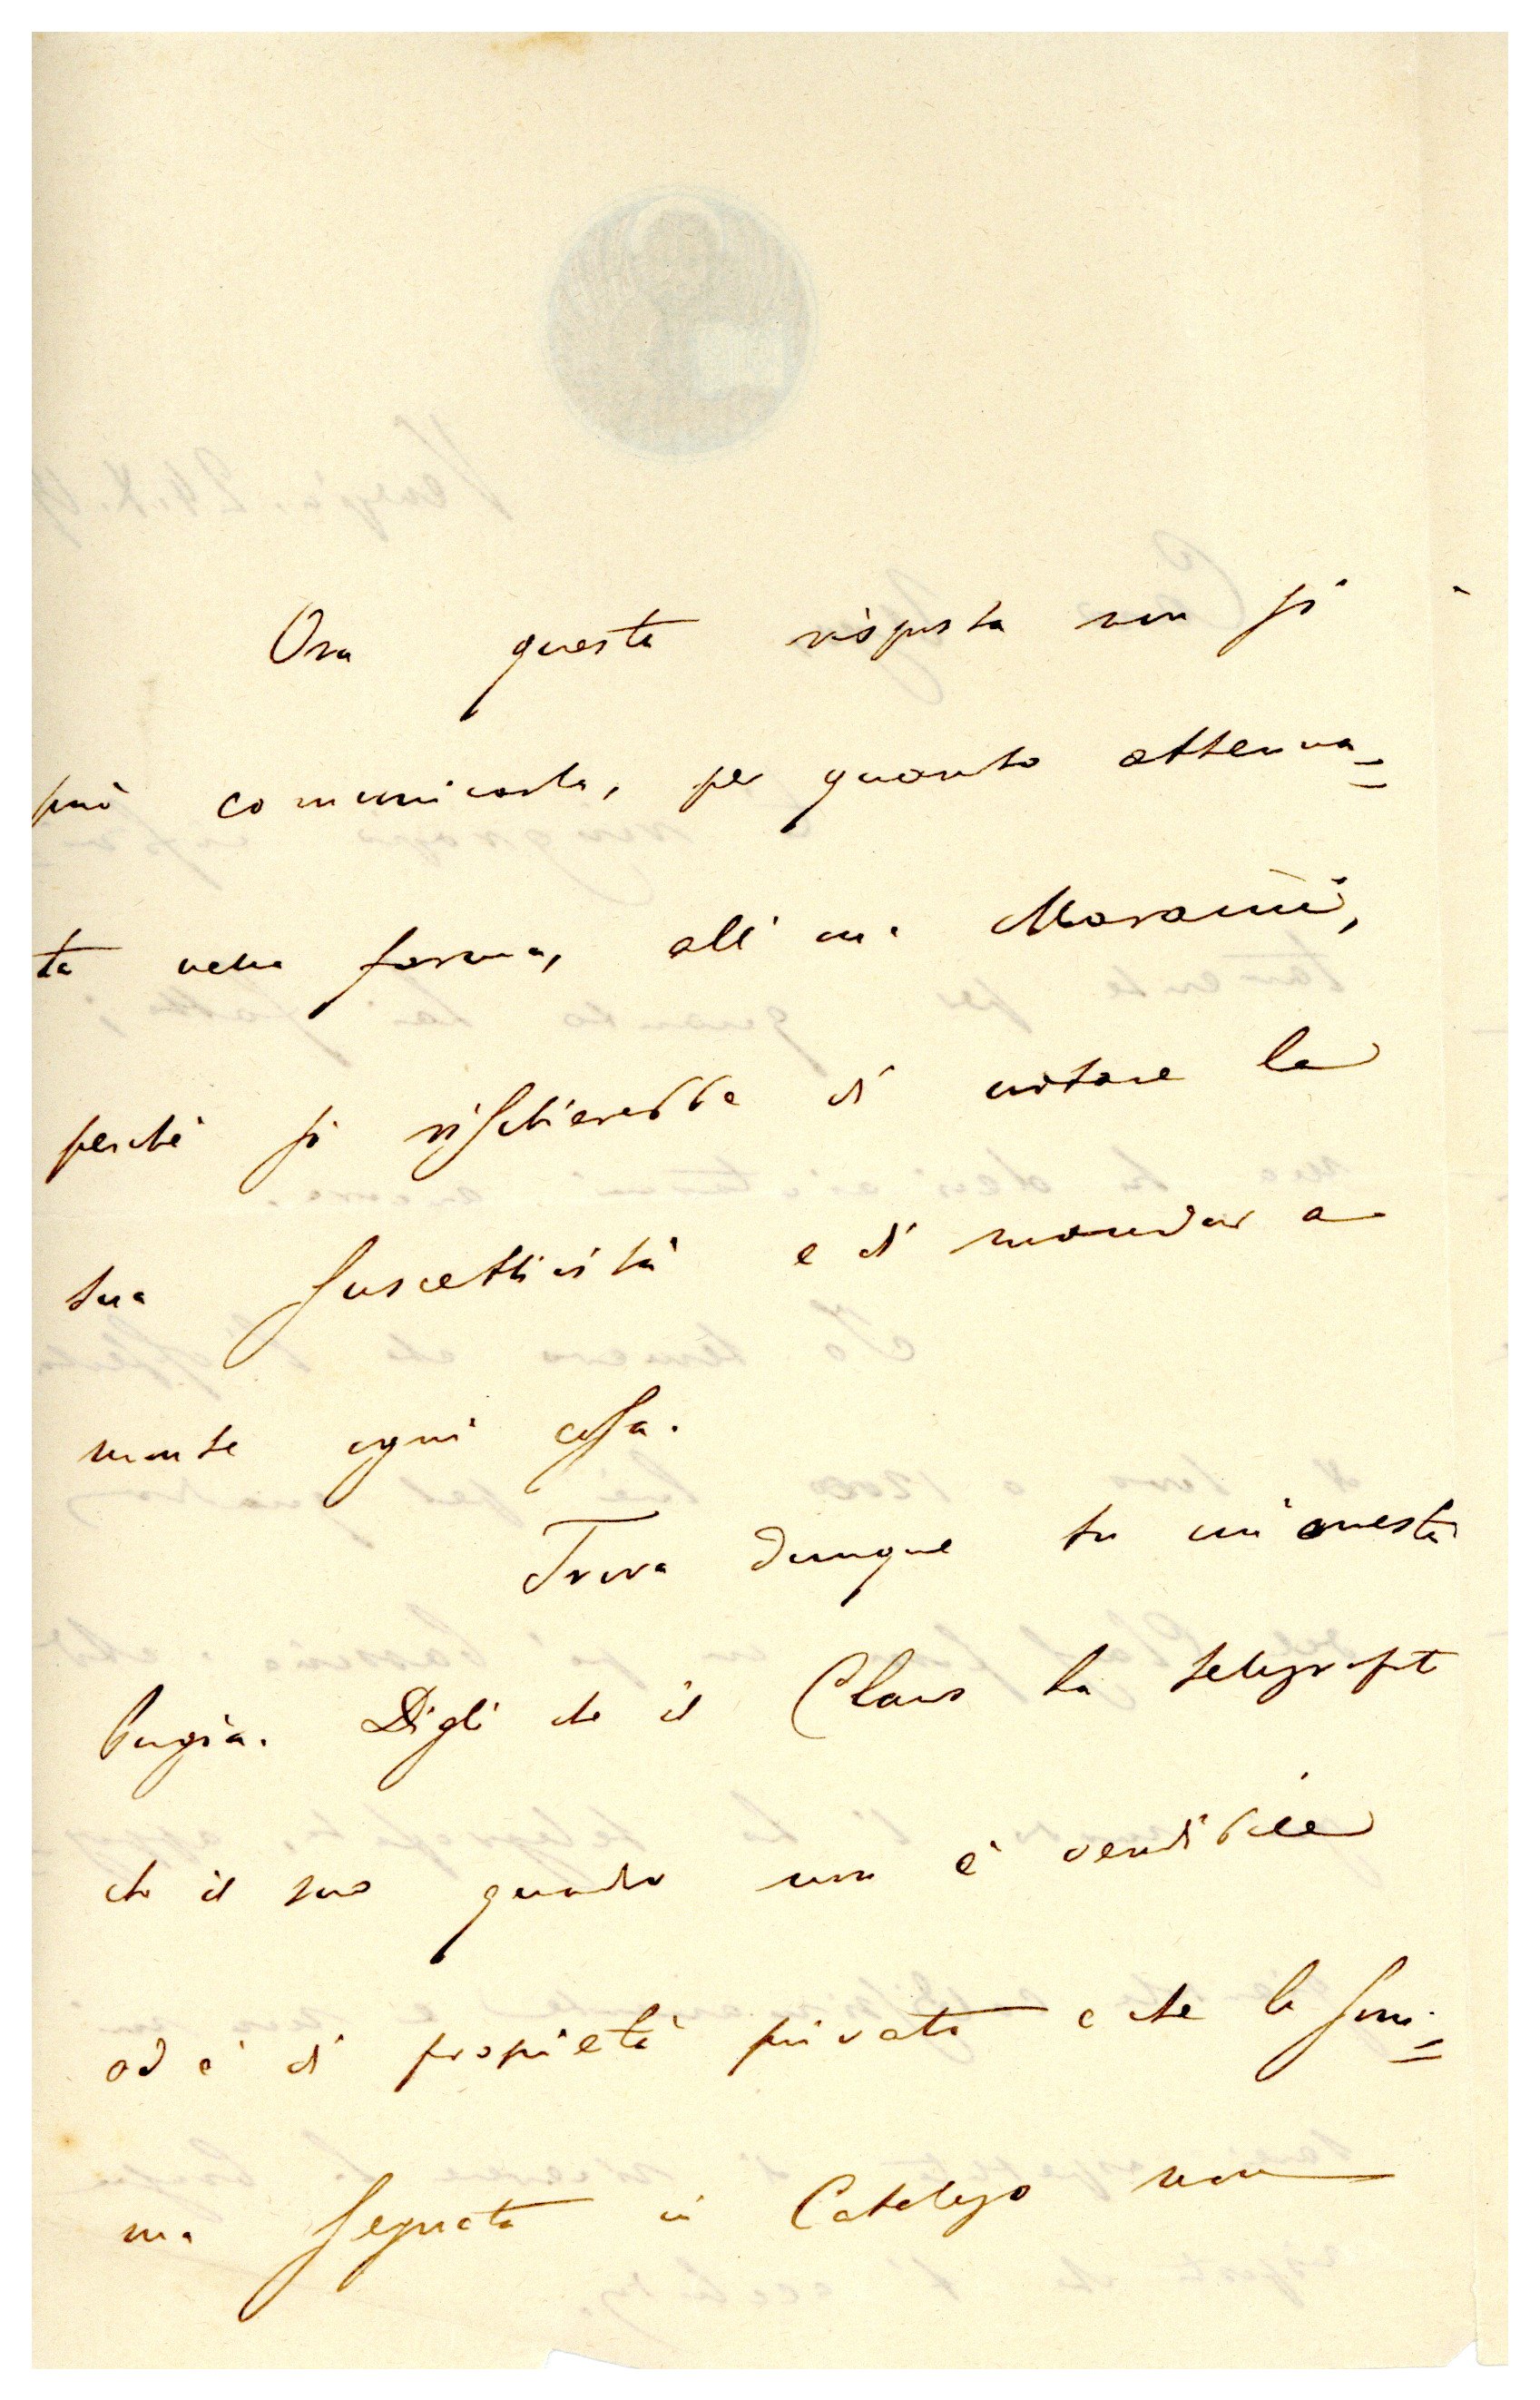 Ora questa risposta non si
può comunicarla, per quanto attenua=
ta nella forma, all' on. Maraini,
perchè si rischierebbe di urtare la
sua suscettività e di mandar a
monte ogni cosa.
Trova dunque tu un'onesta
bugia. Digli che il Claus ha telegrafato
che il suo quadro non è vendibile
od è di proprietà privata e che la som=
ma segnata in Catalogo non